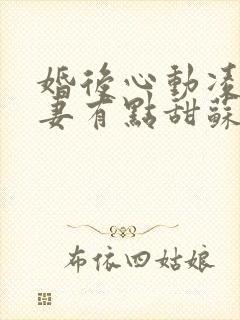 婚後心動凌
妻有點甜蘇
布依四姑娘